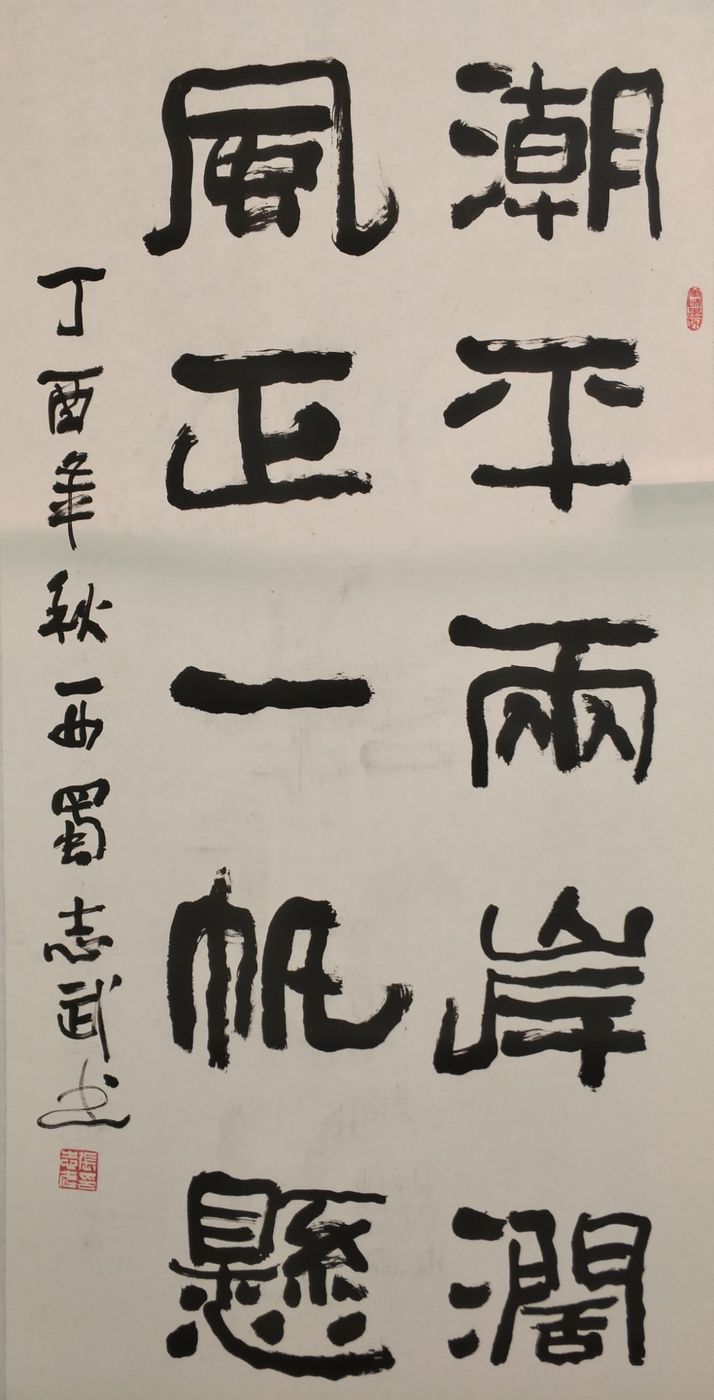 潮平兩岸濶
風正一帆懸
丁酉年秋西蜀志武书